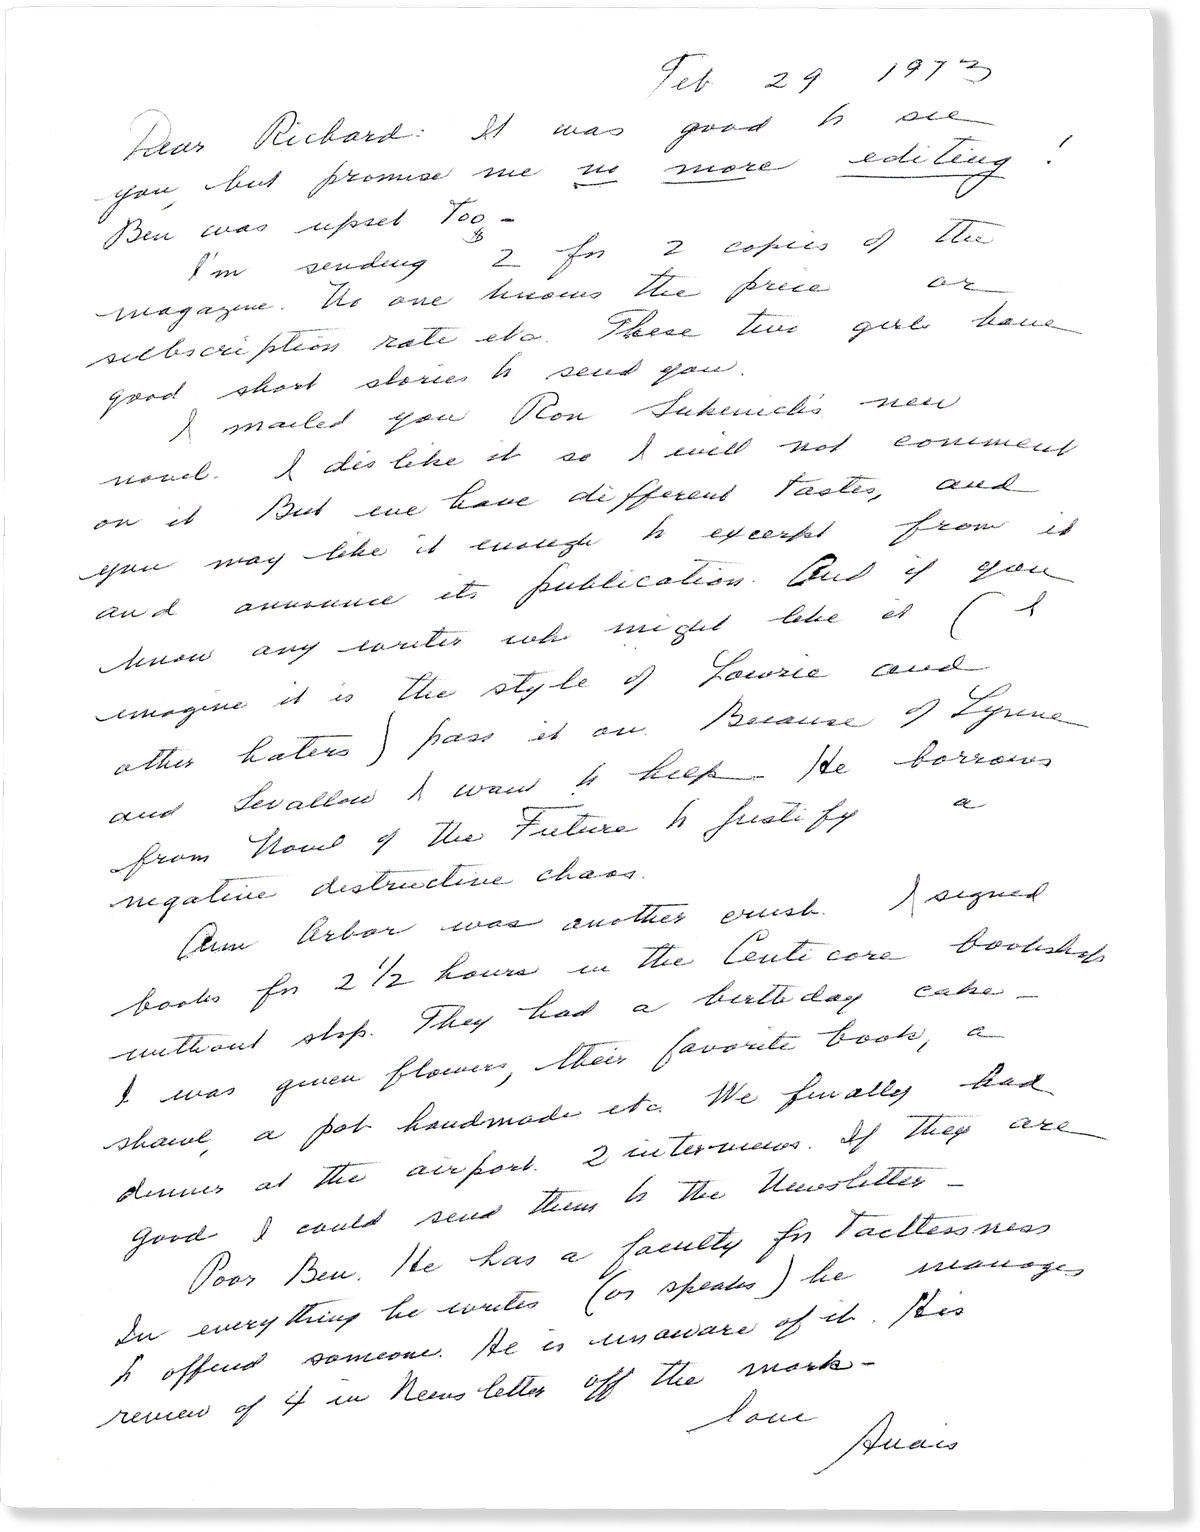 Feb 29 1973
Dear Richard: It was good to see
you, but promise me no more editing!
Ben was upset Too -
I'm sending $2 for 2 copies of the
magazine. No one knows the price or
subscription rate etc. These two girls have
good short stories to send you.
I mailed you Ron Sukenick's new
novel. I dislike it so I will not comment
on it But we have different Tastes, and
you may like it enough to excerpt from it
and announce its publication. And if you
know any writer who might like it ( I
imagine it is the style of Lowrie and
other haters) pass it on. Because of
and Swallow I want to keep - He borrows
from Novel of the Future to justify a
negative destructive chaos.
Ann Arbor was another crush. I signed
books for 2 1/2 hours in the Centicore bookshop
without stop. They had a birthday cake -
I was given flowers, their favorite book, a
shawl, a pot handmade etc. We finally had
dinner at the airport. 2 interviews. If they are
good I could send them to the Newsletter -
Poor Ben. He has a faculty for Tactlessness
In everything he writes (or speaks) he manages
to offend someone. He is unaware of it. His
review of 4 in Newsletter off the mark -
love
Anais